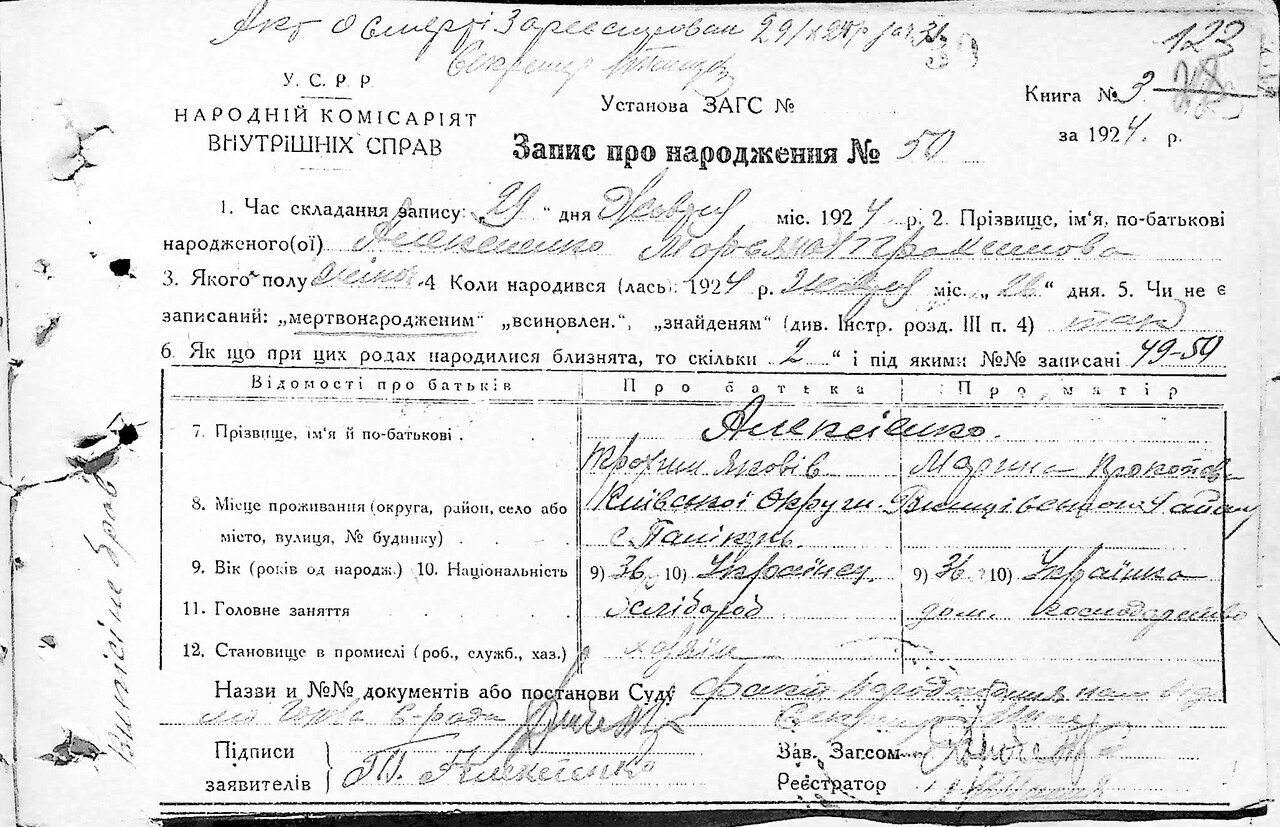 Акт о смерті зареєстрован 29/X
Секретар
123
У. С. Р. Р.
НАРОДНІЙ КОМІСАРІЯТ
ВНУТРІШНІХ СПРАВ
Установа ЗАГС №
Книга № 3
за 1924 р.
Запис про народження № 50
1. Час складання запису: „29" дня Жовтня міс. 1924 р. 2. Прізвище, ім'я, по-батькові
народженого(ої) Алексієнко Трохимова
3. Якого полу жіноч. 4 Коли народився (лась): 1924 р. Жовтня міс. „26" дня. 5. Чи не є
записаний: „мертвонародженим" „всиновлен.", „знайденям" (див. Інстр. розд. III п. 4)
6. Як що при цих родах народилися близнята, то скільки „2" і під якими №№ записані 49-50
Відомості про батьків Про батька Про матір
7. Прізвище, ім'я й по-батькові . Алексієнко.
Трохим Яковів Марина Прокопов
8. Місце проживання (округа, район, село або Київської Округи
місто, вулиця, № будинку) с.
9. Вік (років од народж.) 10. Національність 9) 36 10) Українец 9) 36 10) Українка
11. Головне заняття Хлібороб дом. господарство
12. Становище в промислі (роб., служб., хаз.) хазяїн
Назви и №№ документів або постанови Суду факт народження нам відо
мо Голова С-ради Секретар
Підписи
заявителів
Т. Алексієнко
Зав. Загсом
Реєстратор